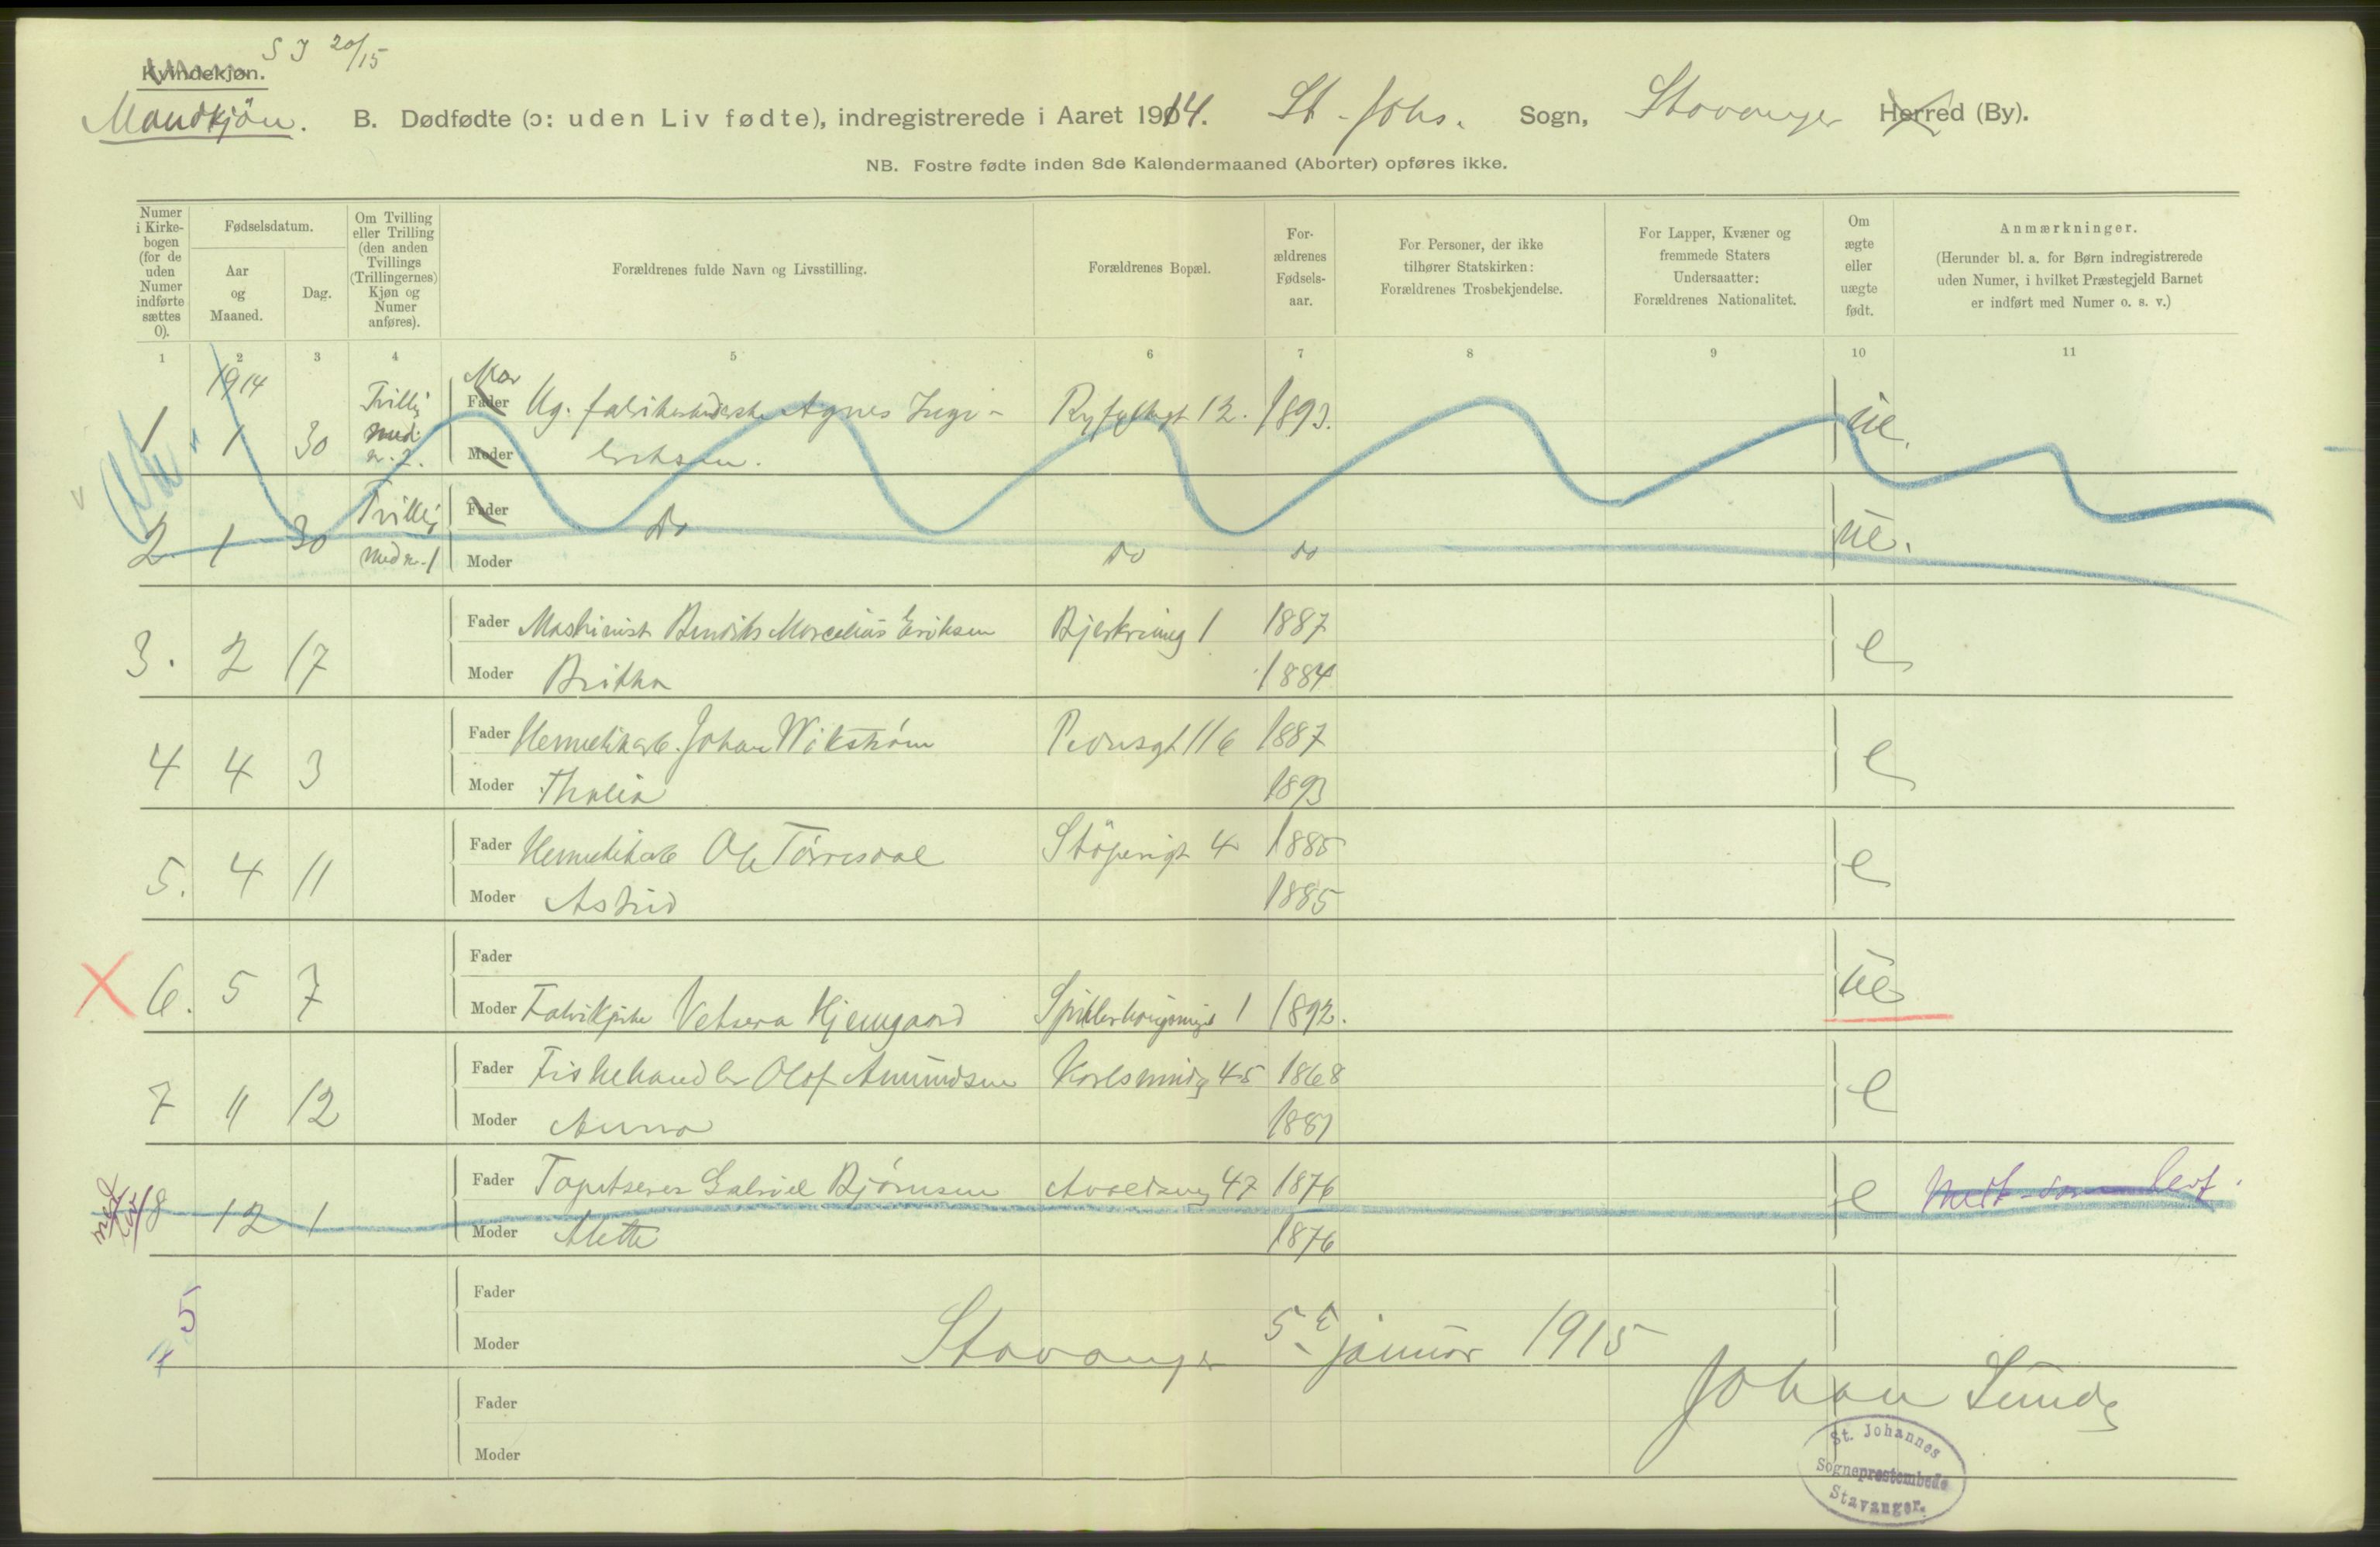 S J 20/15
Kvindekjøn.
Mandkjön. B. Dødfødte (ɔ: uden Liv fødte), indregistrerede i Aaret 1914. St. Johs. Sogn, Stavanger Herred (By).
NB. Fostre fødte inden 8de Kalendermaaned (Aborter) opføres ikke.
Numer i Kirke-bogen (for de uden Numer indførte sættes 0).
Fødselsdatum.
Aar og Maaned.
Dag.
Om Tvilling eller Trilling (den anden Tvillings (Trillingernes) Kjøn og Numer anføres).
Forældrenes fulde Navn og Livsstilling.
Forældrenes Bopæl.
For-ældrenes Fødsels-aar.
For Personer, der ikke tilhører Statskirken: Forældrenes Trosbekjendelse.
For Lapper, Kvæner og fremmede Staters Undersaatter: Forældrenes Nationalitet.
Om ægte eller uægte født.
Anmærkninger.
(Herunder bl. a. for Børn indregistrerede uden Numer, i hvilket Præstegjeld Barnet er indført med Numer o. s. v.)
1 2 3 4 5 6 7 8 9 10 11
1914
1 1 30 Tvillig med n. 2. Mor Fader Ug. Agnes 12. 1893. ue.
Moder Eriksen.
2 1 30 Tvillig med n. 1 Fader do do do ue.
Moder
3. 2 17 Fader Maskinist Bendiks Marcelius Eriksen Bjerkreimg 1 1887 e
Moder Britha 1884
4 4 3 Fader Hermetikarb. Johan Wikström Pedersgt 116 1887 e
Moder Thalia 1893
5. 4 11 Fader Hermetikarb Ole Tørresdal Støperigt 4 1885 e
Moder Astrid 1885
6. 5 7 Fader
Moder Fabrikpike Hjemgaard 1 1892. ue
7 11 12 Fader Fiskehandler Olaf Amundsen Karlsming 45 1868 e
Moder Anna 1881
med lev 8 12 1 Fader Tapetserer Gabriel Bjørnsen Avaldsng 47 1876 e Medt som levf.
Moder Mette 1876
5
Fader
Moder Stavanger 5te januar 1915
Johan Lunde
Fader
Moder
St. Johannes
Sogneprestembede
Stavanger.